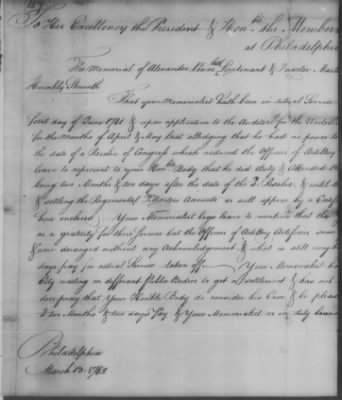 To His Excellency the President & Honble the Members
at Philadelphia
The Memorial of Alexander Power Lieutenant & Quarter Mast
Humbly Sheweth
That your Memorialist hath been on duty at
first day of June 1781 & upon application to the Auditors for the United
for the months of April & May last alledging that he had no power to
the date of a Resolve of Congress which ordered the Officers of Artillery
leave to represent to your Honble Body that he did duty & Attended
being two Months & two days after the date of the Resolve, & until
& settling the Regimental Qr Masters Accounts as will appear by a Certif
here inclosed Your Memorialist begs leave to mention that
as a gratuity for their Services but the Officers of Artillery Artificers
were deranged without any Acknowledgement & what is still very
days pay for actual Service taken off Your Memorialist
City waiting on different Publick Boders to get a Settlement & has not
does pray that Your Honble Body do consider his Case & be pleas
two Months & two days Pay & Your Memorialist as in duty bound
Philadelphia
March 1782